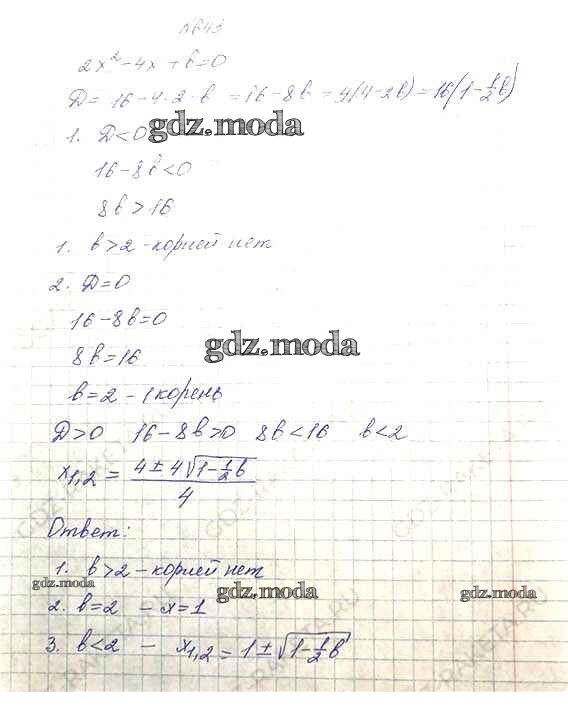 №643
2x²-4x+b=0
D=16-4·2·b=16-8b=4(4-2b)=16(1-½b)
gdz.moda
1. D<0
16-8b<0
8b>16
1. b>2-корней нет
2. D=0
16-8b=0
gdz.moda
8b=16
b=2-1 корень
D>0 16-8b>0 8b<16 b<2
x₁,₂=(4±4√(1-½b))/4
Ответ:
1. b>2-корней нет
gdz.moda gdz.moda gdz.moda
2. b=2 -x=1
3. b<2 - x₁,₂=1±√(1-½b)